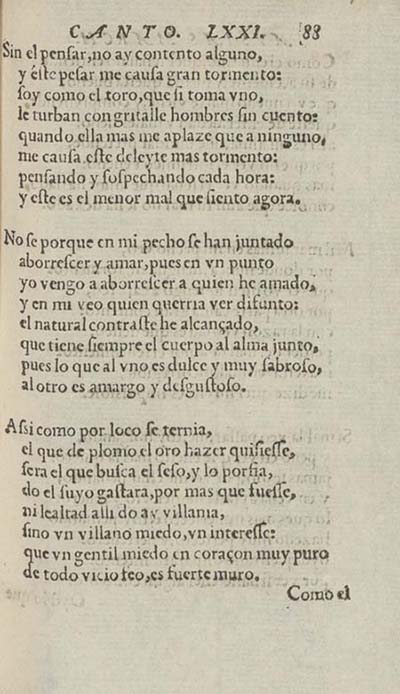 CANTO. LXXI. 88
Sin el pensar, no ay contento alguno,
y éste pesar me causa gran tormento:
soy como el toro, que si toma vno,
le turban con gritalle hombres sin cuento:
quando ella mas me aplaze que a ninguno,
me causa este deleyte mas tormento:
pensando y sospechando cada hora:
y este es el menor mal que siento agora.
No se porque en mi pecho se han juntado
aborrescer y amar, pues en vn punto
yo vengo a aborrescer a quien he amado,
y en mi veo quien querria ver difunto:
el natural contraste he alcançado,
que tiene siempre el cuerpo al alma junto,
pues lo que al vno es dulce y muy sabroso,
al otro es amargo y desgustoso.
Assi como por loco se ternia,
el que de plomo el oro hazer quisiesse,
sera el que busca el seso, y lo porfia,
do el suyo gastara, por mas que fuesse,
ni lealtad alli do ay villania,
sino vn villano miedo, vn interesse:
que vn gentil miedo en coraçon muy puro
de todo vicio feo, es fuerte muro.
Como el